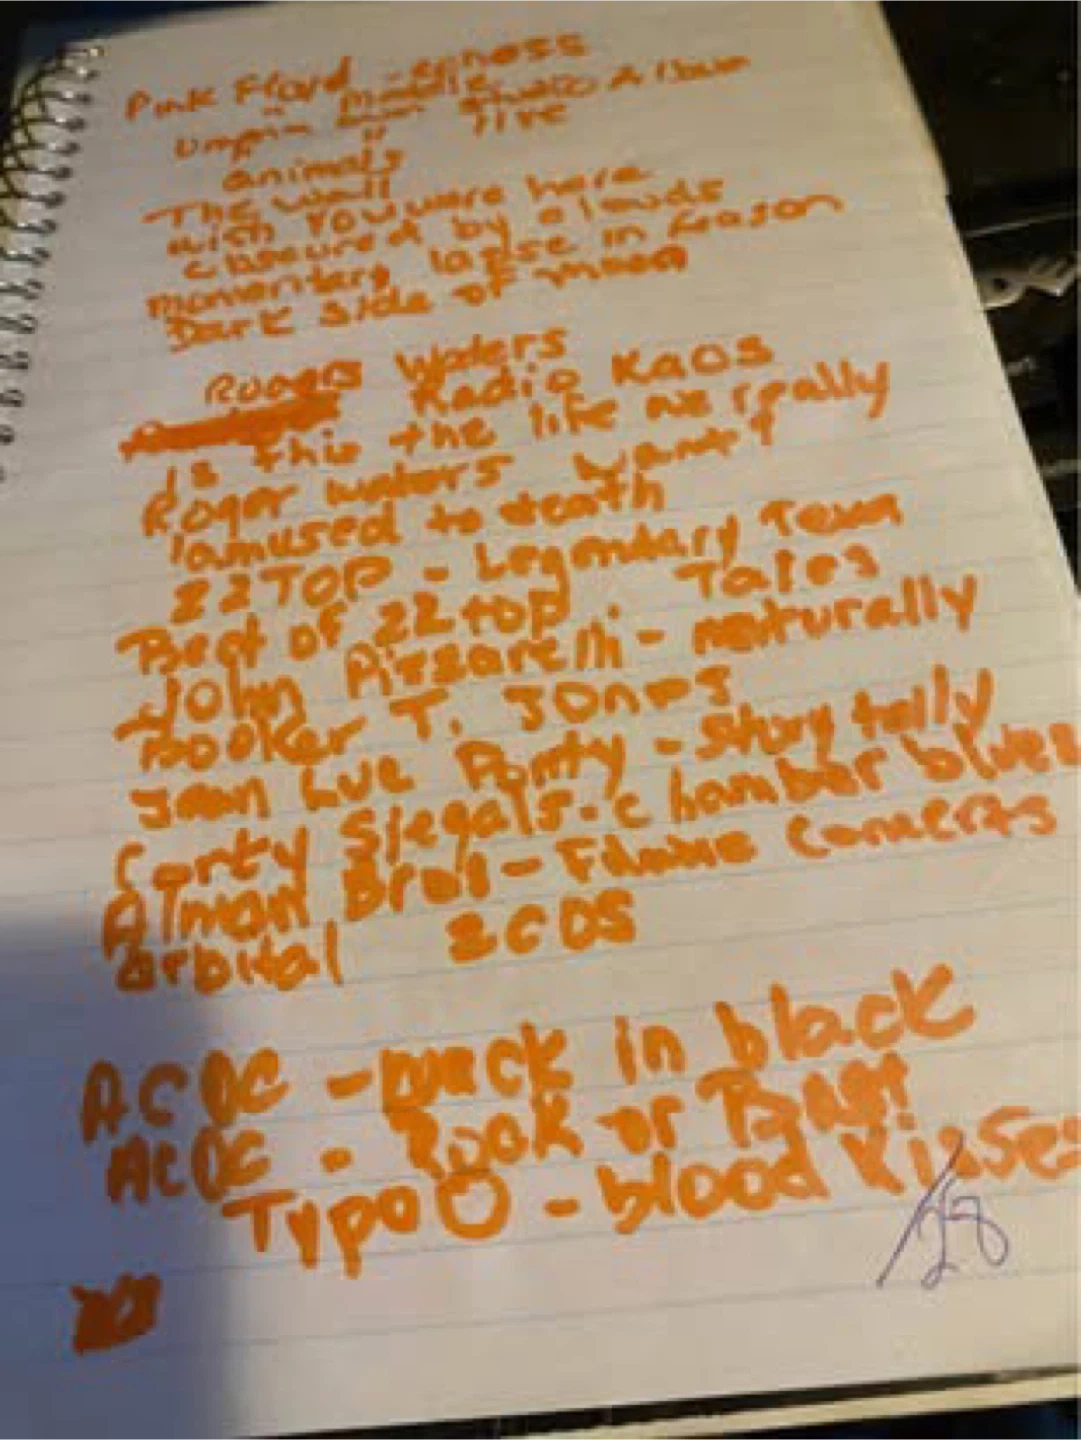 Pink Floyd - echoes
" meddle
Ummm Studio Album
" live
animals
The wall
wish You were here
obscured by clouds
momentery lapse in reason
Dark side of moon
Rogers Waters
Radio KAOS
is this the life we really
Roger waters want?
amused to death
ZZTOP - Legendary Texas
Best of ZZ top. Tales
John Pizzarelli - naturally
Booker T. Jones
Jean Luc Ponty - Story telly
Corky Siegals - chamber blues
Alman Bros - Filmore Concerts
orbital 2 CDS
ACDC - back in black
ACDC - Rock or Bust
Typo O - blood kisses